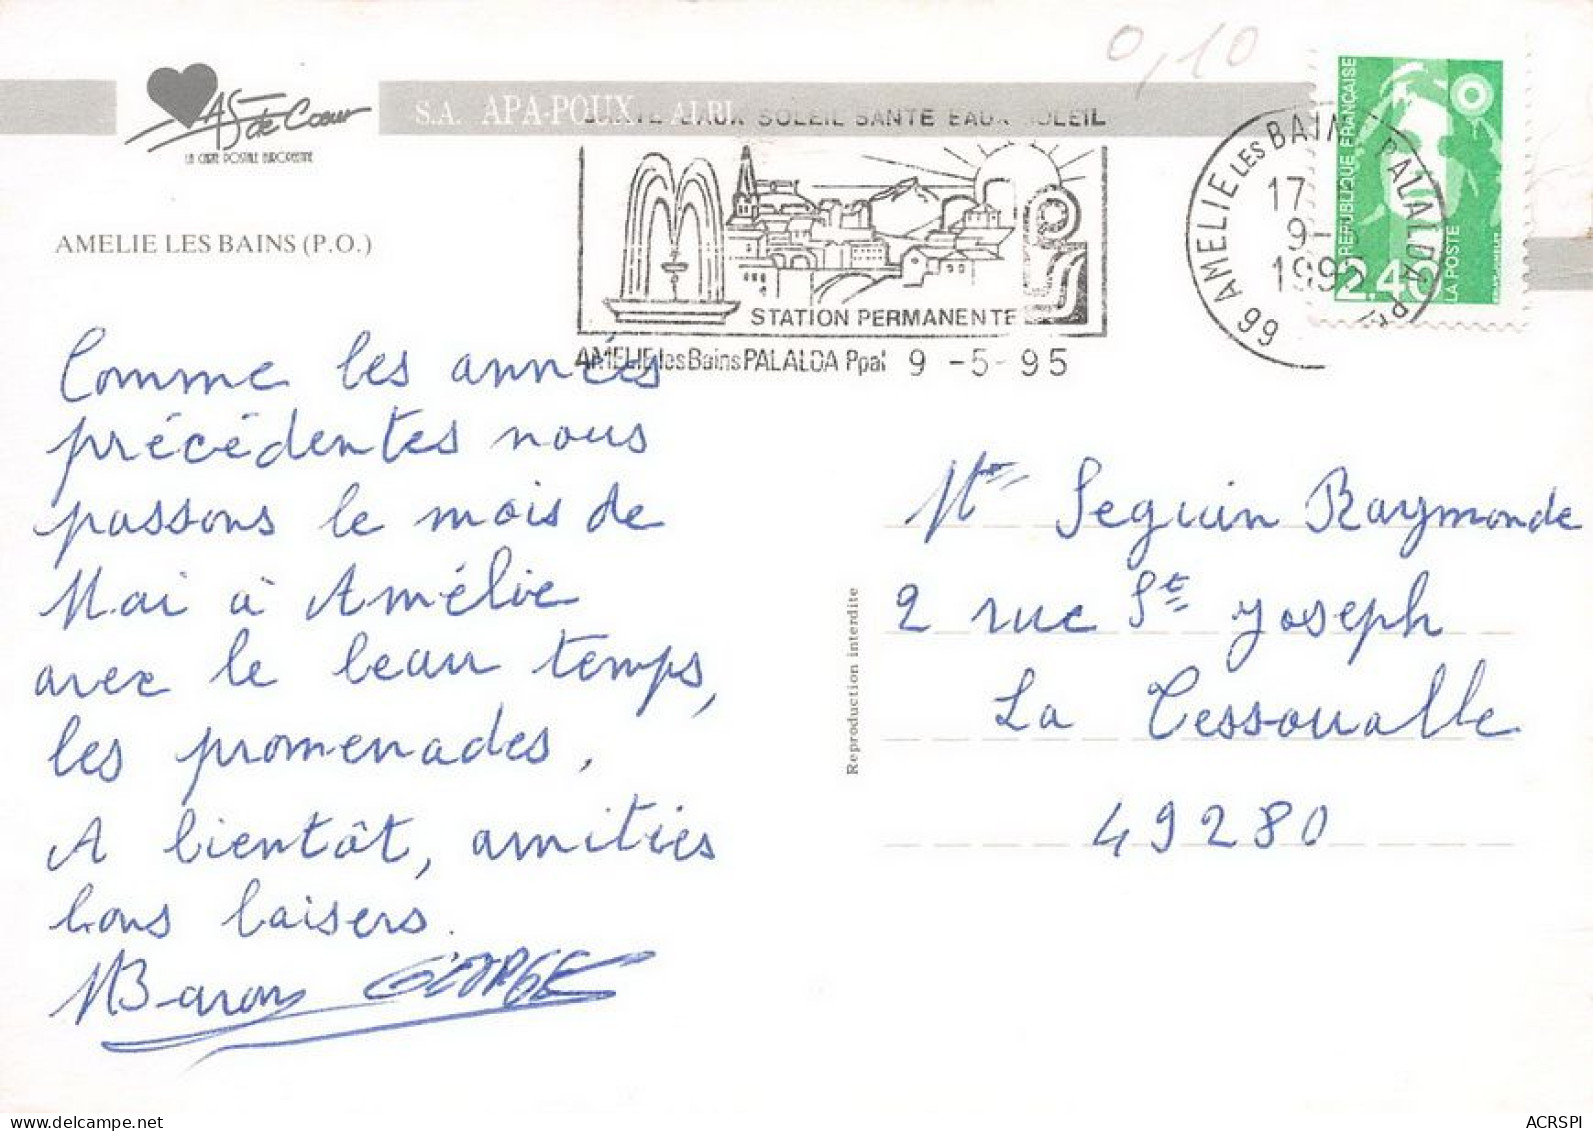 0,10
As de Coeur
LA CARTE POSTALE EUROPEENNE
S.A. APA-POUX - ALBI
SOLEIL SANTE EAUX SOLEIL
AMELIE LES BAINS (P.O.)
STATION PERMANENTE
AMELIE les Bains PALALDA Ppal 9 -5-95
66 AMELIE LES BAINS PALALDA
17
9-
199
REPUBLIQUE FRANÇAISE
2,40
LA POSTE
Comme les années
précédentes nous
passons le mois de
Mai à Amélie
avec le beau temps,
les promenades.
A bientôt, amitiés
bons baisers.
MBaron GEORGE
Reproduction interdite
Me Seguin Raymonde
2 rue St Joseph
La Tessoualle
49280
ACRSPI